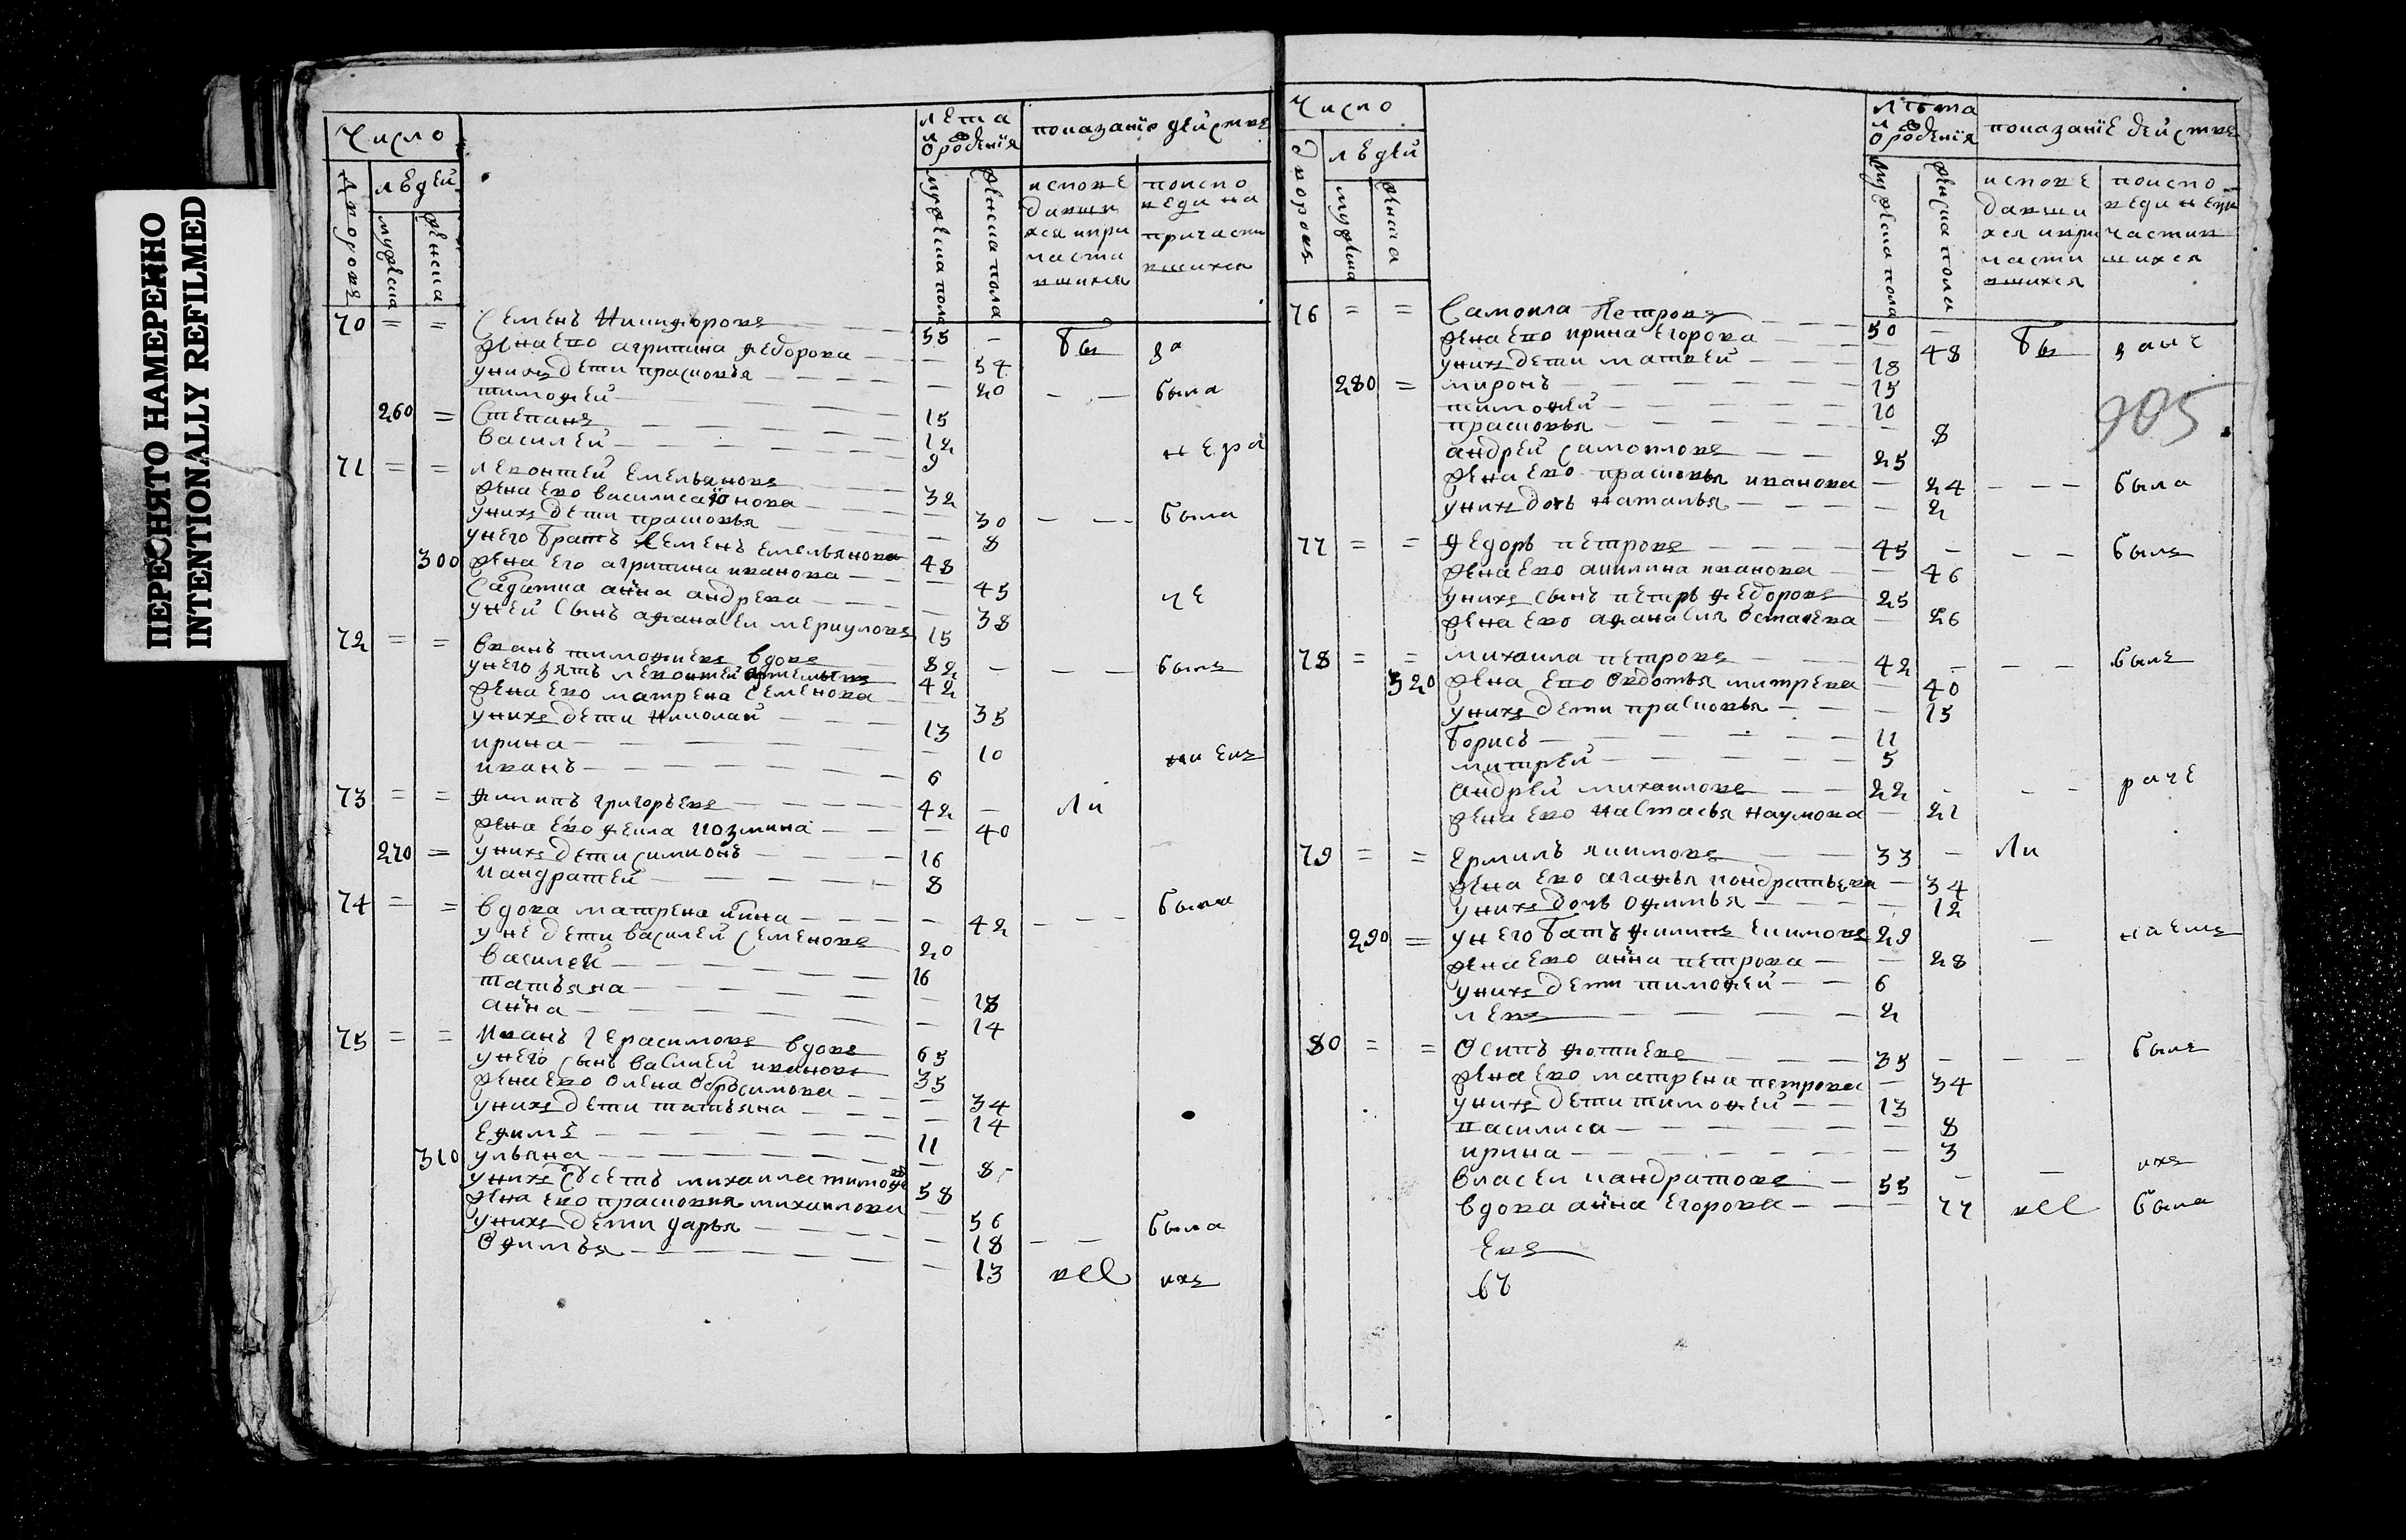 ПЕРЕСНЯТО НАМЕРЕННО
INTENTIONALLY REFILMED
Число
лета от рождения
показание действ
дворовъ
людей
мужска
женска
мужеска пола
женска пола
исповедавшихся и причастившихся
по исповеди на причастившихся
70 = = Семенъ Никифоровъ — — 55 — бы
жена ево агрипина федорова — — 54 за
у нихъ дети прасковья — — — 20 — — была
тимофей — — — 15
260 = Степанъ — — — 12
василей — — — 9 не ра
71 = = леонтей емельяновъ 32
жена ево василиса — 30 — — была
у нихъ дети прасковья — — 8
у него братъ семенъ емельяновъ 48
300 жена его агрипина иванова — — 45
Солдатка анна андрева — — 38 че
у ней сынъ афанасеи меркуловъ 15
72 = = Иванъ тимофиевъ вдовъ 82 — — — былъ
у него зять леонтей 42
жена ево матрена семенова 35
у нихъ дети николаи — — 13
ирина — — — — 10
иванъ — — — 6
73 = = филипъ григорьевъ — — — 42 — ли
жена ево фекла козмина — — — 40
270 = у нихъ дети симионъ — — — 16
кандратей — — — 8
74 = = вдова матрена — — — 42 — — — была
у не дети василей семеновъ 20
василей — — — 16
татьяна — — — — 18
анна — — — — 14
75 = = Иванъ герасимовъ вдовъ 65
у него сынъ василей ивановъ 35
жена ево олена — — — 34
у нихъ дети татьяна — — — 14
ефимъ — — — 11
310 ульяна — — — — 8
у нихъ михаила 58
жена ево прасковия михаилова — 56
у нихъ дети дарья — — — 18 — — была
офимья — — — — 13 all ихъ
Число
лѣта от рождения
показание действ
дворовъ
людей
мужеска
женска
мужеска пола
женска пола
исповедавшихся и причастившихся
по исповеди не причастившихся
76 = = Самоила Петровъ — — 50 —
жена ево ирина егорова — — 48 бы заче
у нихъ дети матвей — — 18
280 = миронъ — — — 15
тимофей — — — 10
прасковья — — — — 8
905
андрей самоиловъ — — 25
жена ево прасковья иванова — 24 — — — была
у нихъ дочь наталья — — — 2
77 = = федоръ петровъ — — — 45 — — — былъ
жена ево акилина иванова — — 46
у нихъ сынъ петръ федоровъ 25
жена ево афанасия — 26
78 = = михаила петровъ — — 42 — — — былъ
320 жена ево овдотья митрева — 40
у нихъ дети прасковья — — — 15
борисъ — — — 11
митрей — — — 5
андрей михаиловъ — 22 — — — раче
жена ево настасья наумова — 21
79 = = ермилъ якимовъ — — 33 — ли
жена ево агафья кондратьева — 34
у нихъ дочь офимья — — — 12
290 = у него батъ филипъ екимовъ 29 —
жена ево анна петрова — — 28
у нихъ дети тимофей — — 6
левъ — — — 2
80 = = Осипъ фотиевъ — — 35 — — — былъ
жена ево матрена петрова — 34
у нихъ дети тимофей — — 13
василиса — — — — 8
ирина — — — — 3
власеи кандратовъ — 55 — — ихъ
вдова анна егорова — — — 77 была
евъ
67